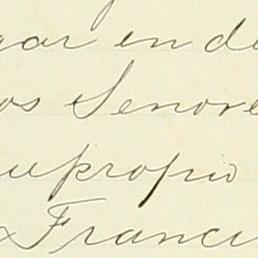 gar en de
os Senore
supropio
Franci